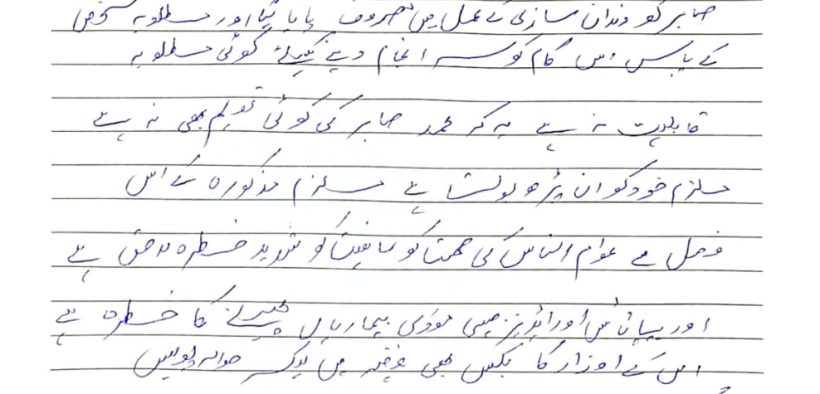 صابر کو دندان سازی کے عمل میں مصروف پایا گیا اور مطلوبہ شخص
کے پاس اس کام کو سر انجام دینے کیلئے کوئی مطلوبہ
قابلیت نہ ہے یہ کہ محمد صابر کی کوئی تعلیم بھی نہ ہے
ملزم خود کو ان پڑھ بولتا ہے ملزم مذکورہ کے اس
فعل سے عوام الناس کی صحت کو شدید خطرہ لاحق ہے
اور ہیپاٹائٹس اور ایڈز جیسی موذی بیماریاں پھیلنے کا خطرہ ہے
اس کے اوزار کا بکس بھی قبضہ میں لیکر حوالہ پولیس